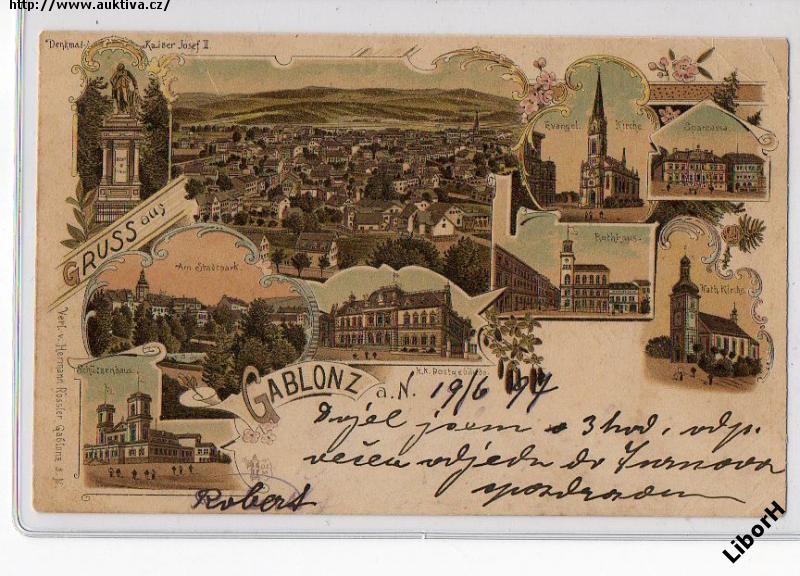 http://www.auktiva.cz/
Denkmal Kaiser Josef II.
Evangel. Kirche
Sparcassa.
GRUSS aus
Rathhaus.
Am Stadtpark.
Kath. Kirche.
Schützenhaus.
K.K. Postgebäude.
GABLONZ a. N. 19/6 97
Dojel jsem o 3 hod. odp.
večer odjedu do Turnova
s pozdravem
Robert
Verl. v. Hermann Rössler Gablonz a. N.
LiborH